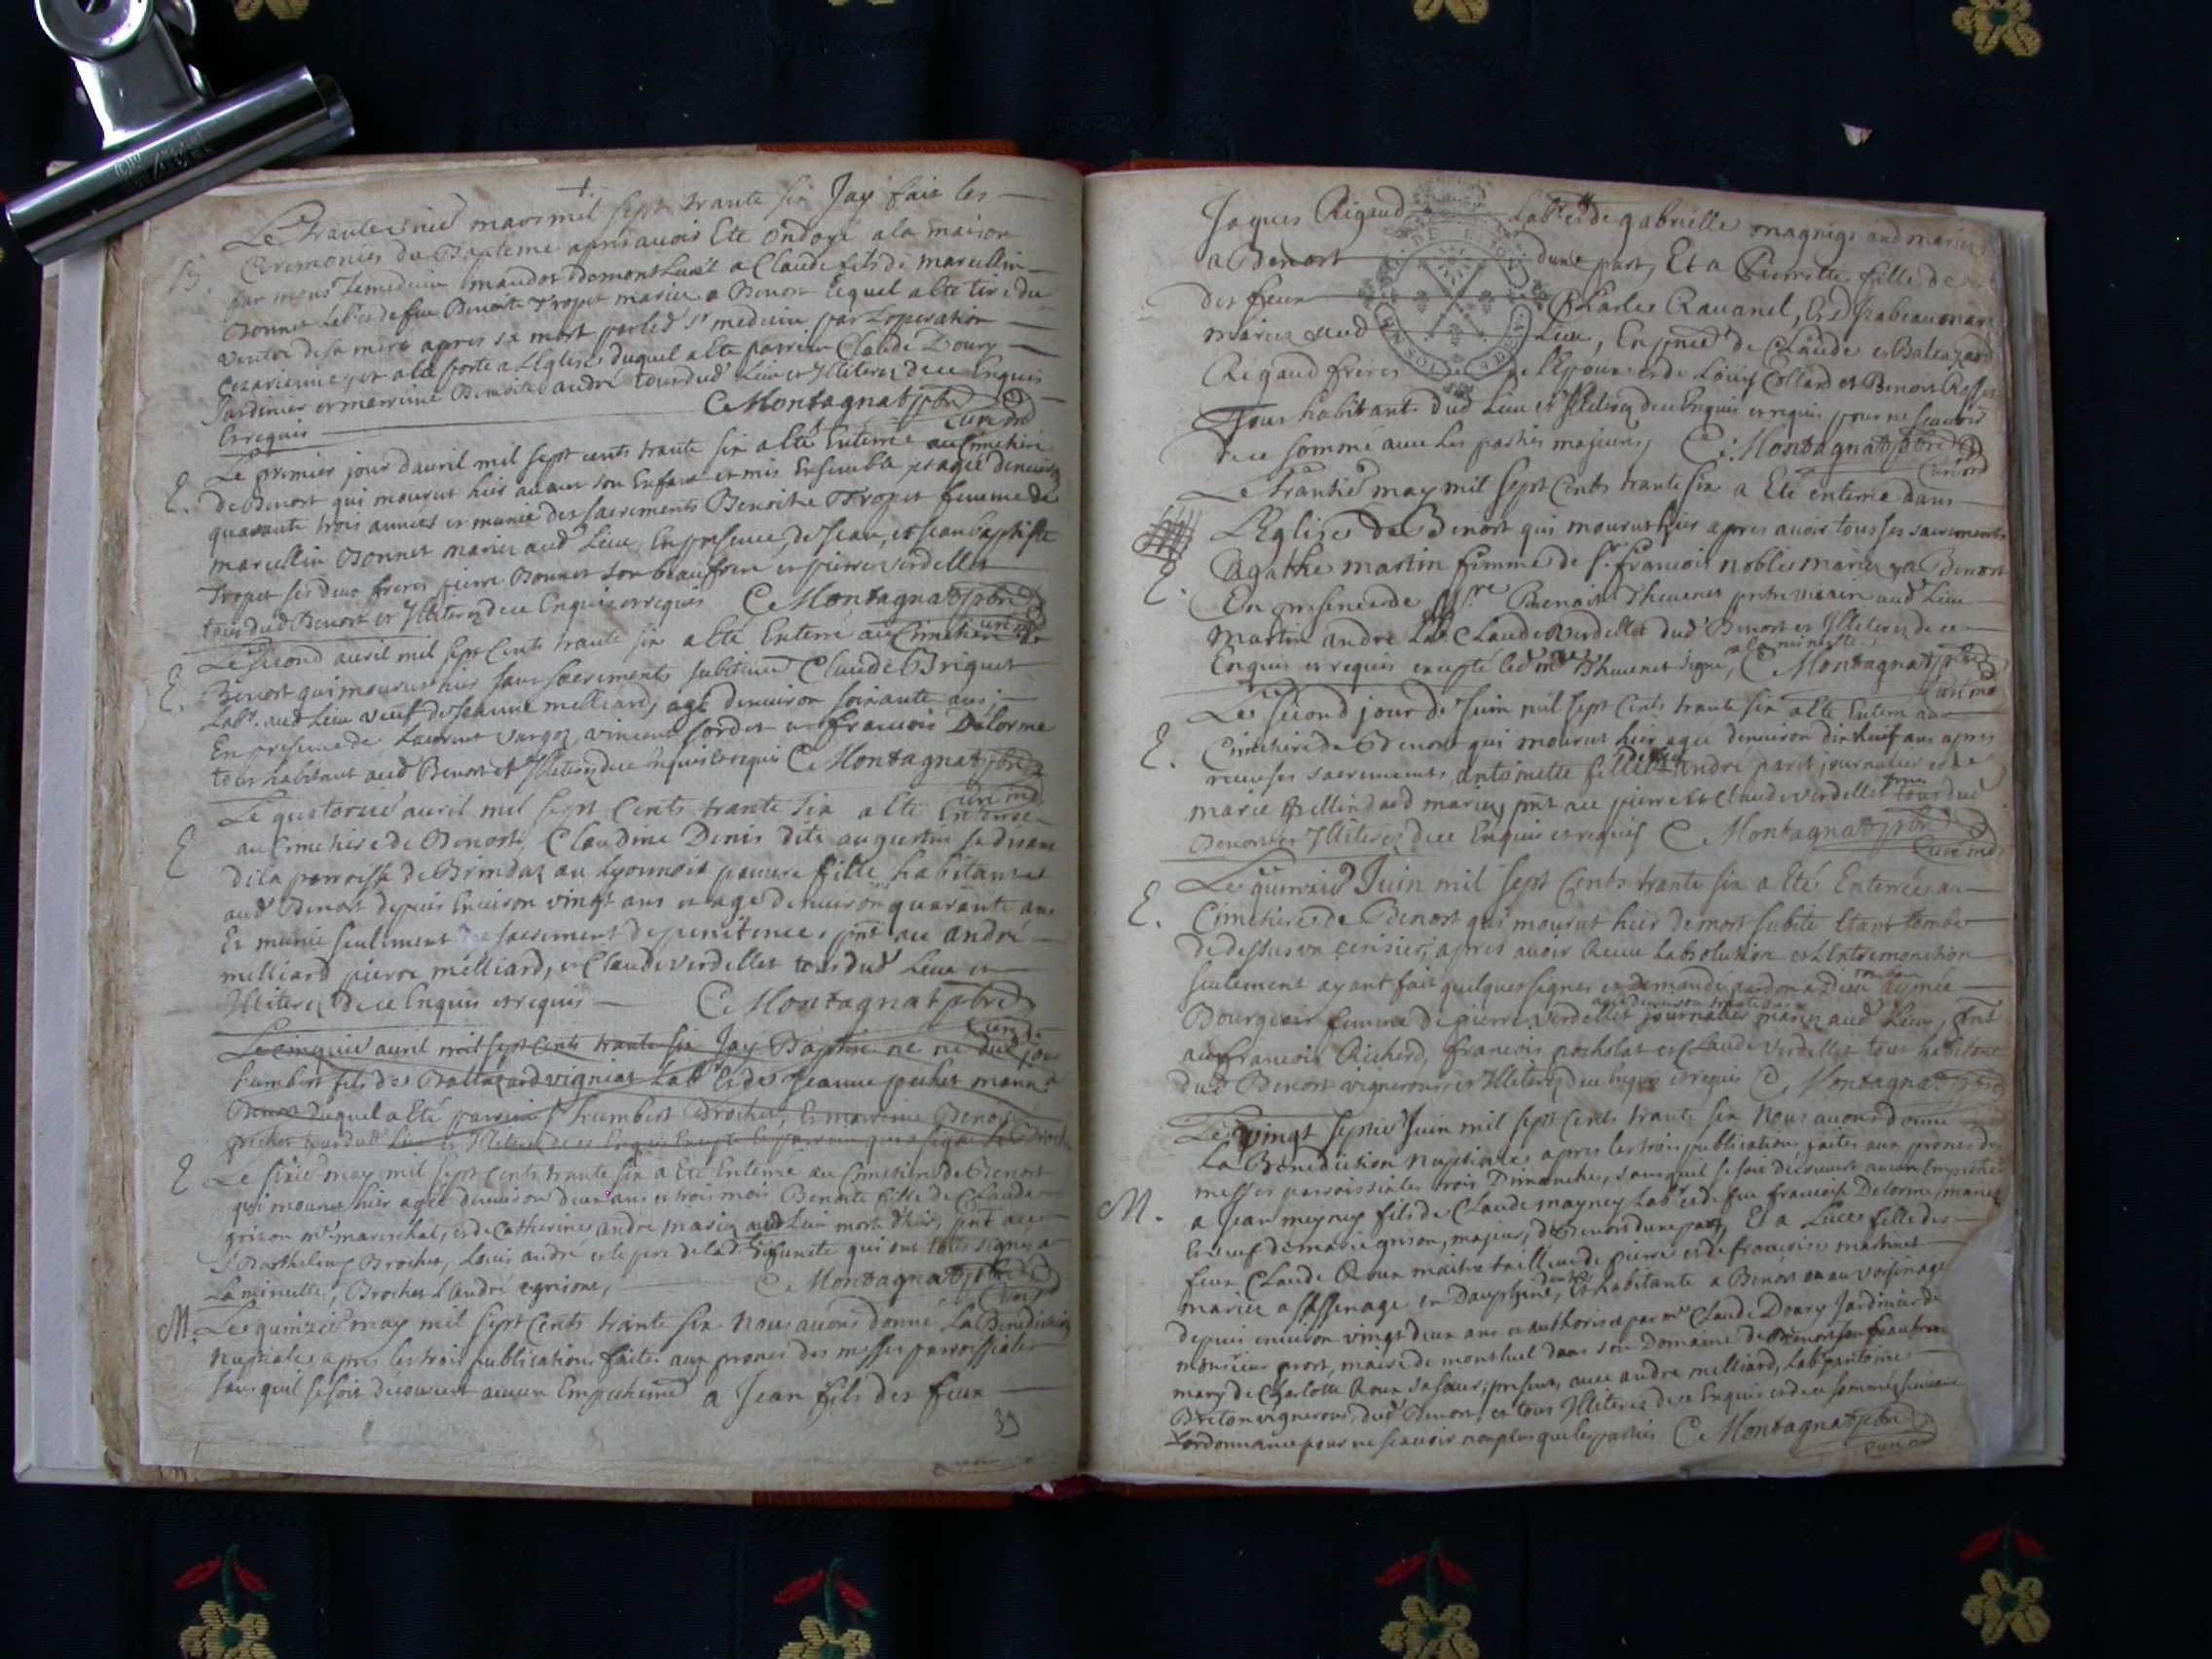 +
Le trante unie mars mil sept trante six Jay fait les
B. Ceremonies du Bapteme apres avoir Eté ondoyé a la maison
par mons. Le medecin mandot de montLuel a Claude fils de marcellin
Bonnet Lab. et de feu Benoite Tropet mariez a Benost Lequel a ete tiré du
ventre de sa mere apres sa mort par led Sr medecin par L'operation
Cezarienne, et a Eté porté a LEglise duquel a Eté parrein Claude Doury
Jardinier et marreine Benoite andré tous dud Lieu et Illiterez de ce Enquis
Et requis
C Montagnat pbre
Curé md
Le premier jour d'avril mil sept cents trante six a Eté Enterrée au Cimetiere
E. de Benost qui mourut hier avant son Enfant et mis Ensemble et agée d'environ
quarante trois années et munie des sacrements Benoite Tropet femme de
marcellin Bonnet mariez aud Lieu En presence, de Jean, et Jean baptiste
Tropet ses deux freres pierre Bonnet son beaufrere et pierre verdellet
tous dud Benost et Illiterez de ce Enquis et requis C Montagnat pbre
Curé md
Le second avril mil sept Cents trante six a Eté Enterré au Cimetiere de
E. Benost qui mourut hier sans sacrements subitement Claude Briguet
Lab. aud Lieu veuf de Jeanne melliard, agé d'environ soixante ans,
En presence de Laurent vargoz, vincent sordet et francois Delorme
tous habitant aud Benost et Illiterez de ce Enquis et requis C Montagnat pbre
Curé md
Le quatorzié avril mil sept Cents trante six a Eté Enterrée
E au Cimetiere de Benost Claudine Denis dite augustin se disant
de la parroisse de Brindaz au Lyonnois pauvre fille habitante
aud Benost depuis Environ vingt ans et agé d'environ quarante ans
Et munie seulement du sacrement de penitence, pnt ace andré
melliard pierre melliard, et Claude verdellet tous dud Lieu et
Illiterez de ce Enquis et requis C Montagnat pbre
Curé
Le cinquié avril mil sept Cents trante six Jay Baptisé ne ne dud jour
humbert fils de Baltazard vigniat Lab. Et de Jeanne pochet mariez
Benost duquel a Eté parrein Sr humbert Brochet, Et marreine Benoite
pochet tous dud Lieu et Illiterez de ce Enquis Excepté le parrein qui a signé
E Le sixié may mil sept Cents trante six a Eté Enterrée au Cimetiere de Benost
qui mourut hier agée denviron deux ans et trois mois Benoite fille de Claude
grison me mareschal, et de Catherine andré mariez aud Lieu morte d'hier, pnt ace
Sr Barthelemy Brochet, Louis andré et le pere de lad deffunte qui ont tous signés a
La minutte, Brochet Landré egrison, C Montagnat pbre
Curé md
M. Le quinzié may mil sept Cents trante six Nous avons donné La Benediction
Nuptiale apres les trois publications faites aux prones des messes parroissiales
sans quil se soit decouvert aucun Empechement a Jean fils des feux
39
Jaques Rigaud Lab. et de gabrielle magnigz aud mariez
a Benost d'une part, Et a Pierrette fille de
des feux Charles Ravanel, Et d'Isabeau
mariez aud Lieu, En pnce de Claude et Baltazard
Rigaud freres de lEpoux et de Loüis Collard et Benoit Rosset
Tous habitants dud Lieu et Illiterez de ce Enquis et requis pour ne scavoir
de ce sommé avec Les parties majeures, C. Montagnat pbre
Curé md
Le trantié may mil sept Cents trante six a Eté enterrée dans
LEglise de Benost qui mourut hier apres avoir tous ses sacrements
E. Agathe martin femme de Sr. francois noble mariez a Benost
En presence de Mre Benoit Thevenet pretre vicaire aud Lieu
martin andré Lab. Claude verdellet dud Benost et Illiterez de ce
Enquis et requis excepté led Mre Thevenet signé, a la minutte, C Montagnat pbre
Curé md
Le second jour de Juin mil sept Cents trante six a Eté Enterré au
E. Cimetiere de Benost qui mourut hier agée denviron dix huit ans apres
receu ses sacrements, antoinette fille d'andré paret journalier et de
marie Bellindard mariez, pnt ace pierre et Claude verdellet freres tous dud
Benost et Illiterez de ce Enquis et requis C Montagnat pbre
Curé md
Le quinzié Juin mil sept Cents trante six a Eté Enterrée au
E. Cimetiere de Benost qui mourut hier de mort subite Etant tombé
de dessus un cerisier, apres avoir Receu Labsolution et LExtremonction
seulement ayant fait quelques signes et demandé pardon a Dieu Aymée
Bourgeois femme de pierre verdellet journalier agée denviron trante ans mariez aud Lieu, pnt
ace francois Richerd, francois pocholat et Claude verdellet tous habitants
dud Benost vignerons, et Illiterez de ce Enquis et requis C. Montagnat pbre
Le vingt septié Juin mil sept Cents trante six Nous avons donné
La Benediction Nuptiale apres les trois publications faites aux prones des
messes parroissiales trois Dimanches, sans quil se soit decouvert aucun Empeche
M. a Jean meyney fils de Claude mayney Lab. et de feu francoise Delorme mariez
Et veuf de marie grison, majeur, de Benost d'une part, Et a Luce fille de
feux Claude Roux maitre tailleur de pierre et de francoise martinet
mariez a sassenage en Dauphiné, et habitante a Benost ou au voisinage
depuis environ vingt deux ans et authorisée par me Claude Doury Jardinier de
monsieur prost, maire de montluel dans son Domaine de Benost son beaufrere
mary de Charlotte Roux sa soeur, presents avec andré melliard, Lab. antoine
Breton vignerons, dud Benost, et tous Illiterez de ce Enquis et de ce sommés suivant
L'ordonnance pour ne scavoir non plus que les parties C Montagnat pbre
Curé md